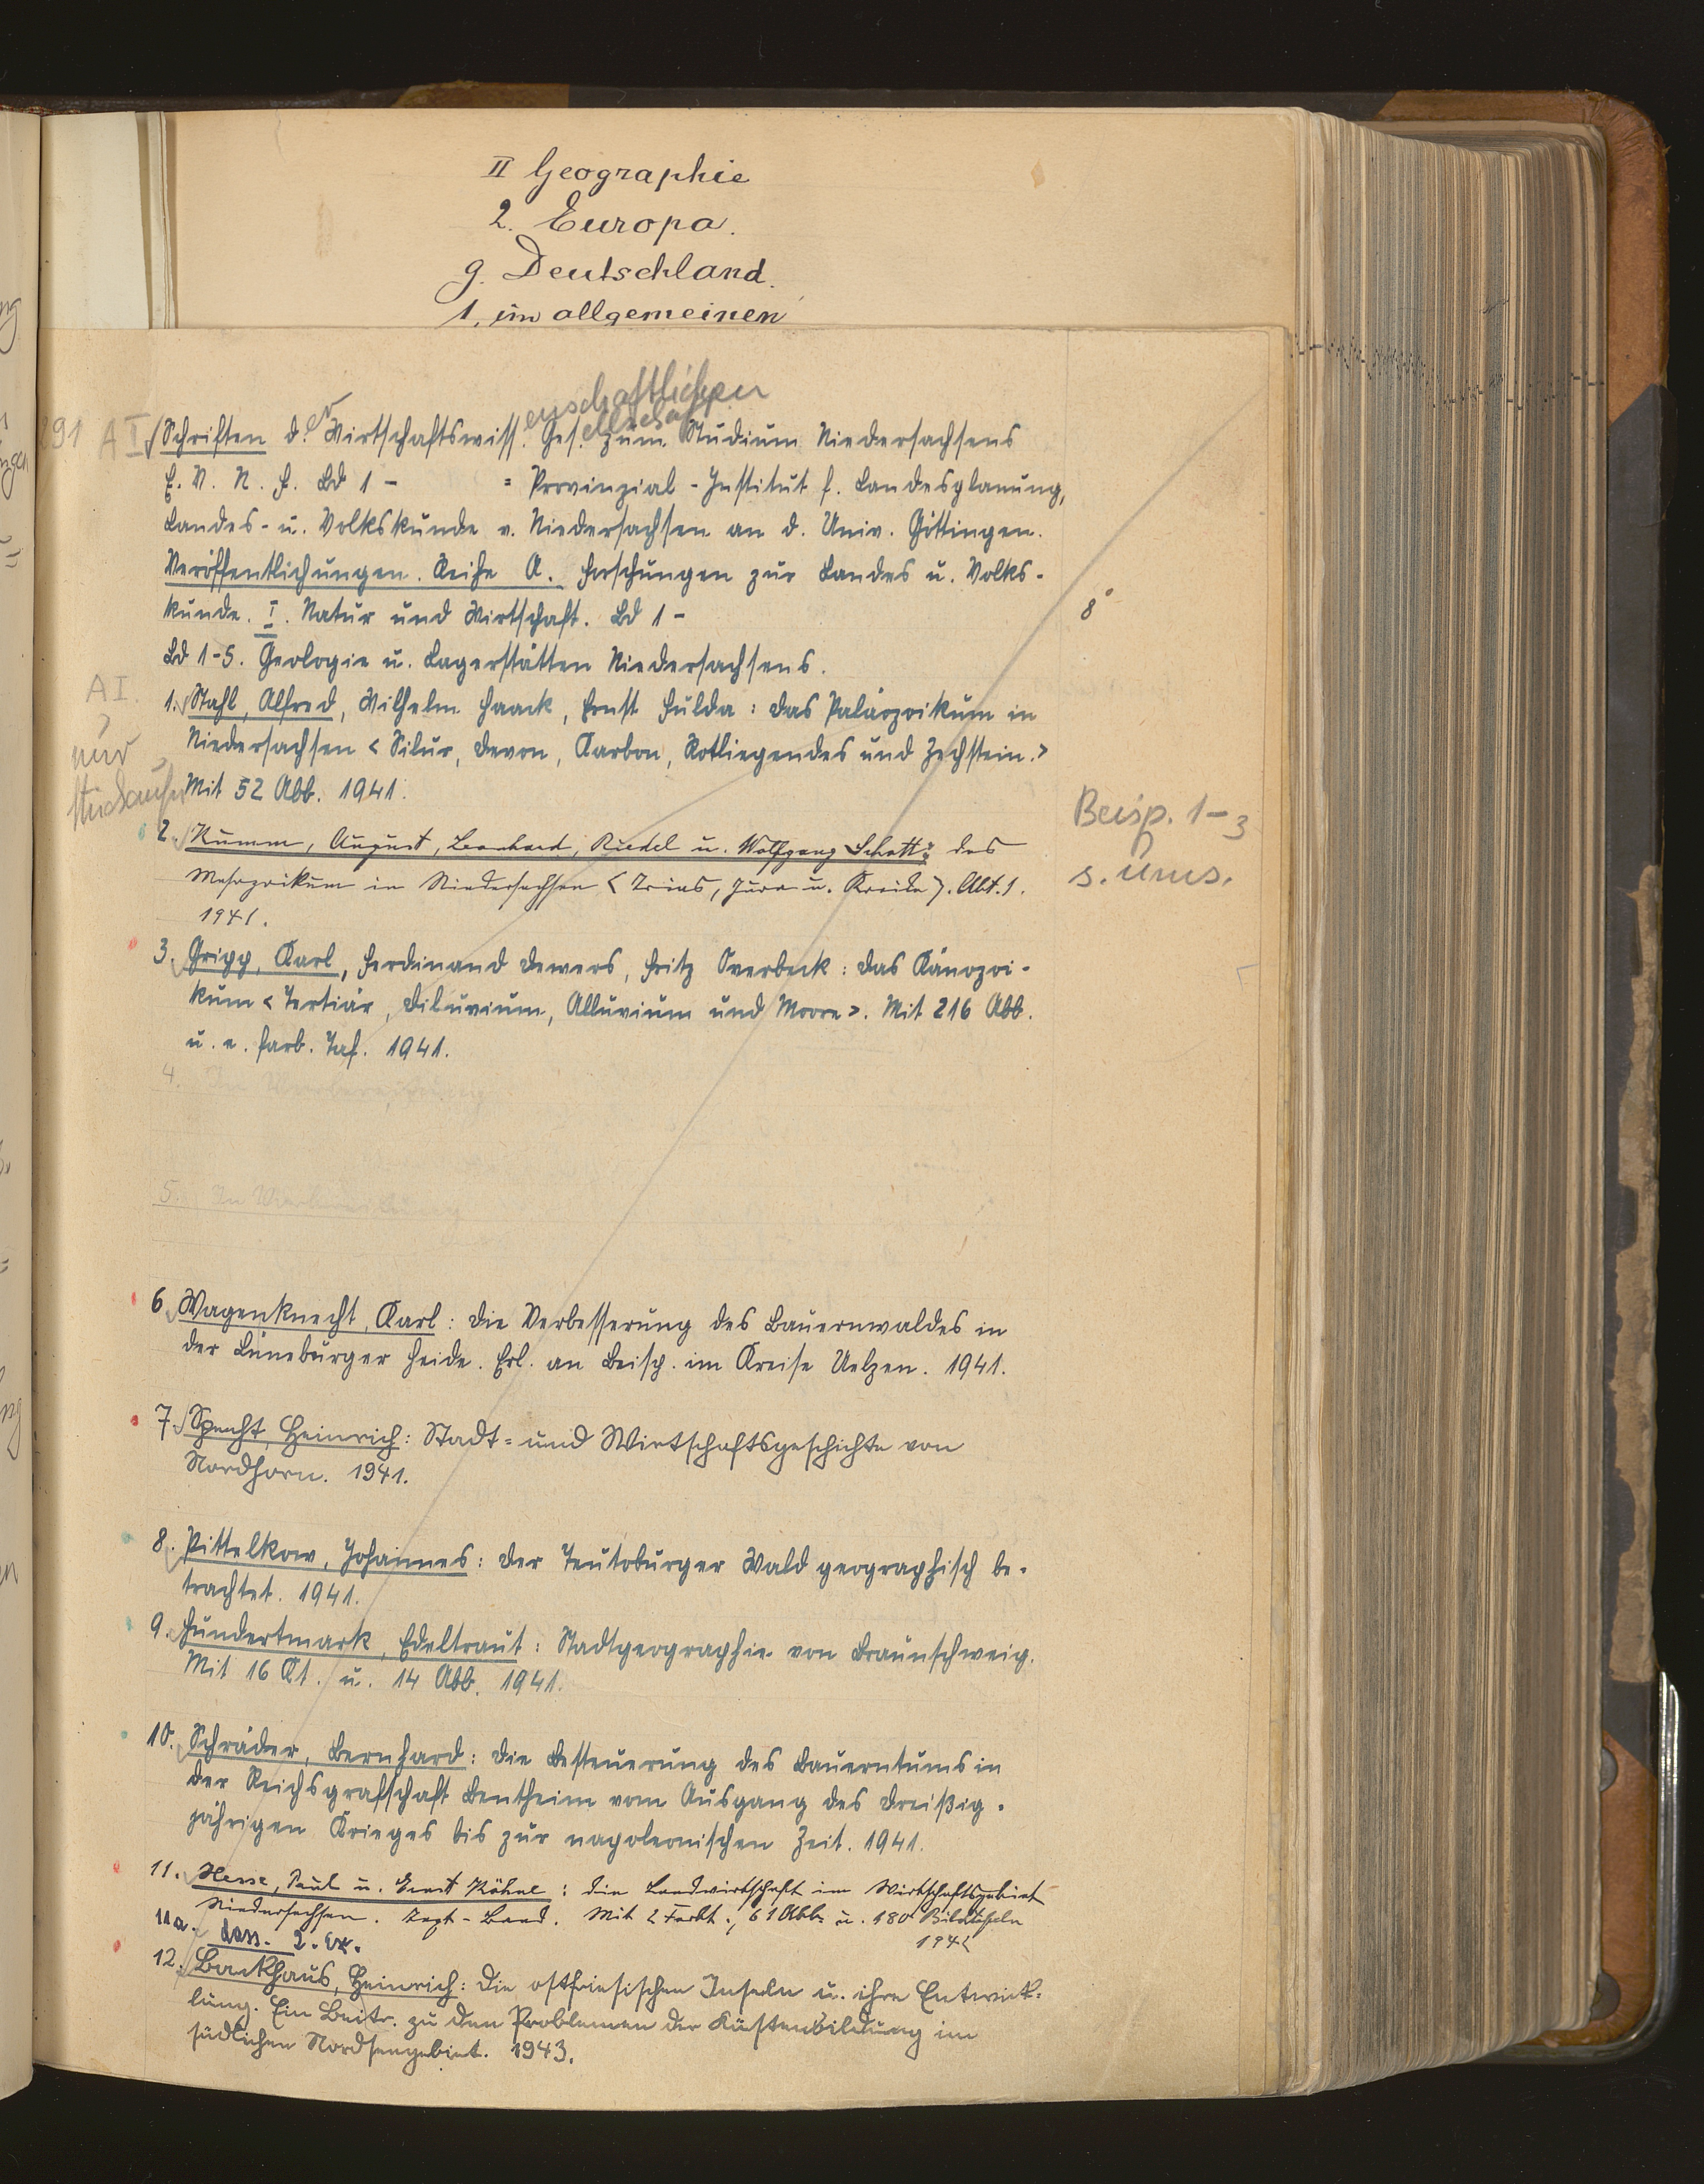 II Geographie
2. Europa.
g. Deutschland.
1. im allgemeinen
enschaftlichen
291 A I Schriften d.er Wirtschaftswiss. Ges.ellschaft zum Studium Niedersachsens
E. V. N. F. Bd 1 - = Provinzial-Institut f. Landesplanung,
Landes- u. Volkskunde v. Niedersachsen an d. Univ. Göttingen.
Veröffentlichungen. Reihe A. Forschungen zur Landes u. Volks-
kunde. I. Natur und Wirtschaft. Bd 1 - 8°
Bd 1-5. Geologie u. Lagerstätten Niedersachsens.
A I.
1. Stahl, Alfred, Wilhelm Haack, Ernst Fulda: Das Paläozoikum in
nur
Niedersachsen < Silur, Devon, Karbon, Rotliegendes und Zechstein. >
Mit 52 Abb. 1941.
Beisp. 1-3
s. ums.
2. Kumm, August, Leonhard, Riedel u. Wolfgang Schott: Das
Mesozoikum in Niedersachsen < Trias, Jura u. Kreide >. Abt. 1.
1941.
3. Gripp, Karl, Ferdinand Dewers, Fritz Overbeck: Das Känozoi-
kum < Tertiär, Diluvium, Alluvium und Moore >. Mit 216 Abb.
u. e. farb. Taf. 1941.
4. In Vorbereitung
5. In Vorbereitung
6. Wagenknecht, Karl: Die Verbesserung des Bauernwaldes in
der Lüneburger Heide. Erl. an Beisp. im Kreise Uelzen. 1941.
7. Specht, Heinrich: Stadt- und Wirtschaftsgeschichte von
Nordhorn. 1941.
8. Pittelkow, Johannes: Der Teutoburger Wald geographisch be-
trachtet. 1941.
9. Hundertmark, Edeltraut: Stadtgeographie von Braunschweig.
Mit 16 Kt. u. 14 Abb. 1941.
10. Schräder, Bernhard: Die Besteuerung des Bauerntums in
der Reichsgrafschaft Bentheim vom Ausgang des Dreißig-
jährigen Krieges bis zur napoleonischen Zeit. 1941.
11. Hesse, Paul u. Ernst Köhne: Die Landwirtschaft im Wirtschaftsgebiet
Niedersachsen. Text-Band. Mit 2 Farbt., 61 Abb. u. 180 Bildtafeln
1942
11a. dass. 2. Ex.
12. Backhaus, Heinrich: Die ostfriesischen Inseln u. ihre Entwick-
lung. Ein Beitr. zu den Problemen der Küstenbildung im
südlichen Nordseegebiet. 1943.